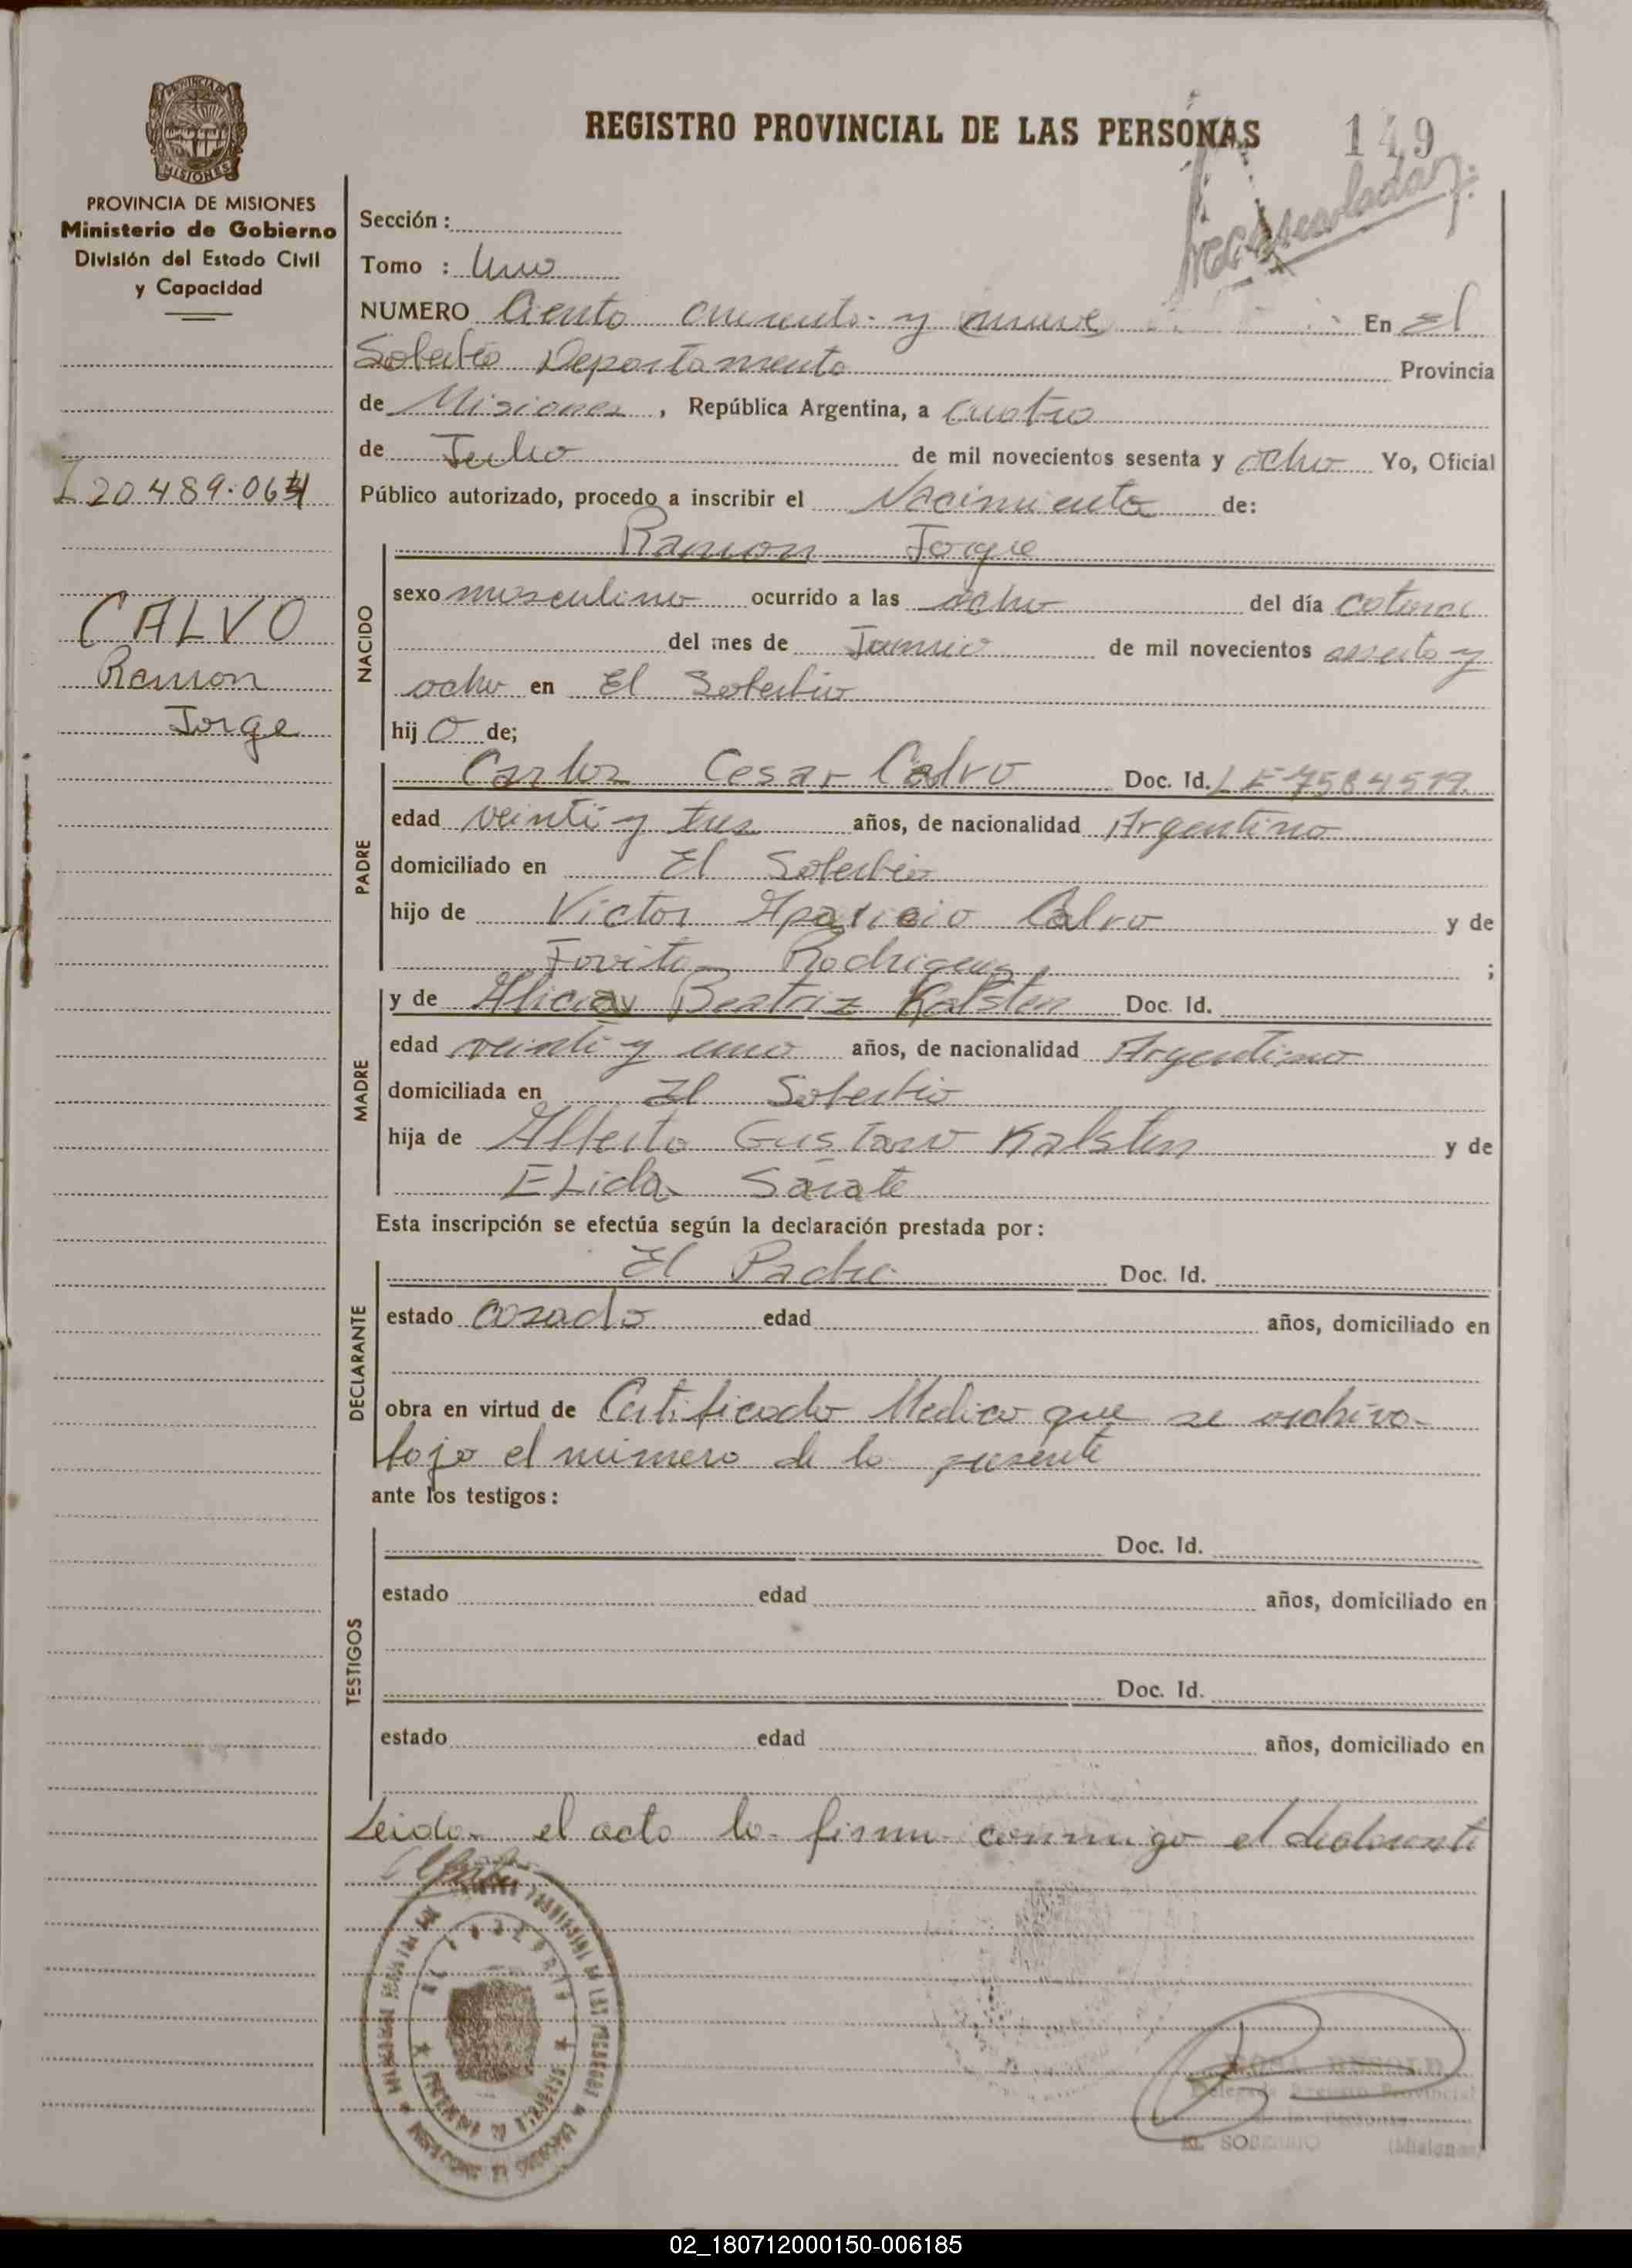 REGISTRO PROVINCIAL DE LAS PERSONAS
149
PROVINCIA DE MISIONES
Ministerio de Gobierno
División del Estado Civil
y Capacidad
Sección :
Tomo : Uno
NUMERO Ciento cuarenta y nueve En El
Soberbio Departamento Provincia
de Misiones , República Argentina, a Cuatro
de Julio de mil novecientos sesenta y ocho Yo, Oficial
20.489.064
Público autorizado, procedo a inscribir el Nacimiento de:
Ramon Jorge
CALVO
Ramon
Jorge
NACIDO
sexo masculino ocurrido a las ocho del día catorce
del mes de Junnio de mil novecientos sesenta y
ocho en El Soberbio
hij o de;
PADRE
Carlos Cesar Calvo Doc. Id. L E 7584519
edad veinti y tres años, de nacionalidad Argentino
domiciliado en El Soberbio
hijo de Victor Aparicio Calvo y de
Jovita Rodriguez ;
MADRE
y de Alicia Beatriz Kalsten Doc. Id.
edad veinti y uno años, de nacionalidad Argentino
domiciliada en El Soberbio
hija de Alberto Gustavo Kalsten y de
Elida Sarate
Esta inscripción se efectúa según la declaración prestada por :
DECLARANTE
El Padre Doc. Id.
estado casado edad años, domiciliado en
obra en virtud de Certificado Medico que se archiva
bajo el número de la presente
ante los testigos :
TESTIGOS
Doc. Id.
estado edad años, domiciliado en
Doc. Id.
estado edad años, domiciliado en
Leido el acto lo firma conmigo el declarante
Provincial
EL SOBERBIO (Misiones)
02_180712000150-006185